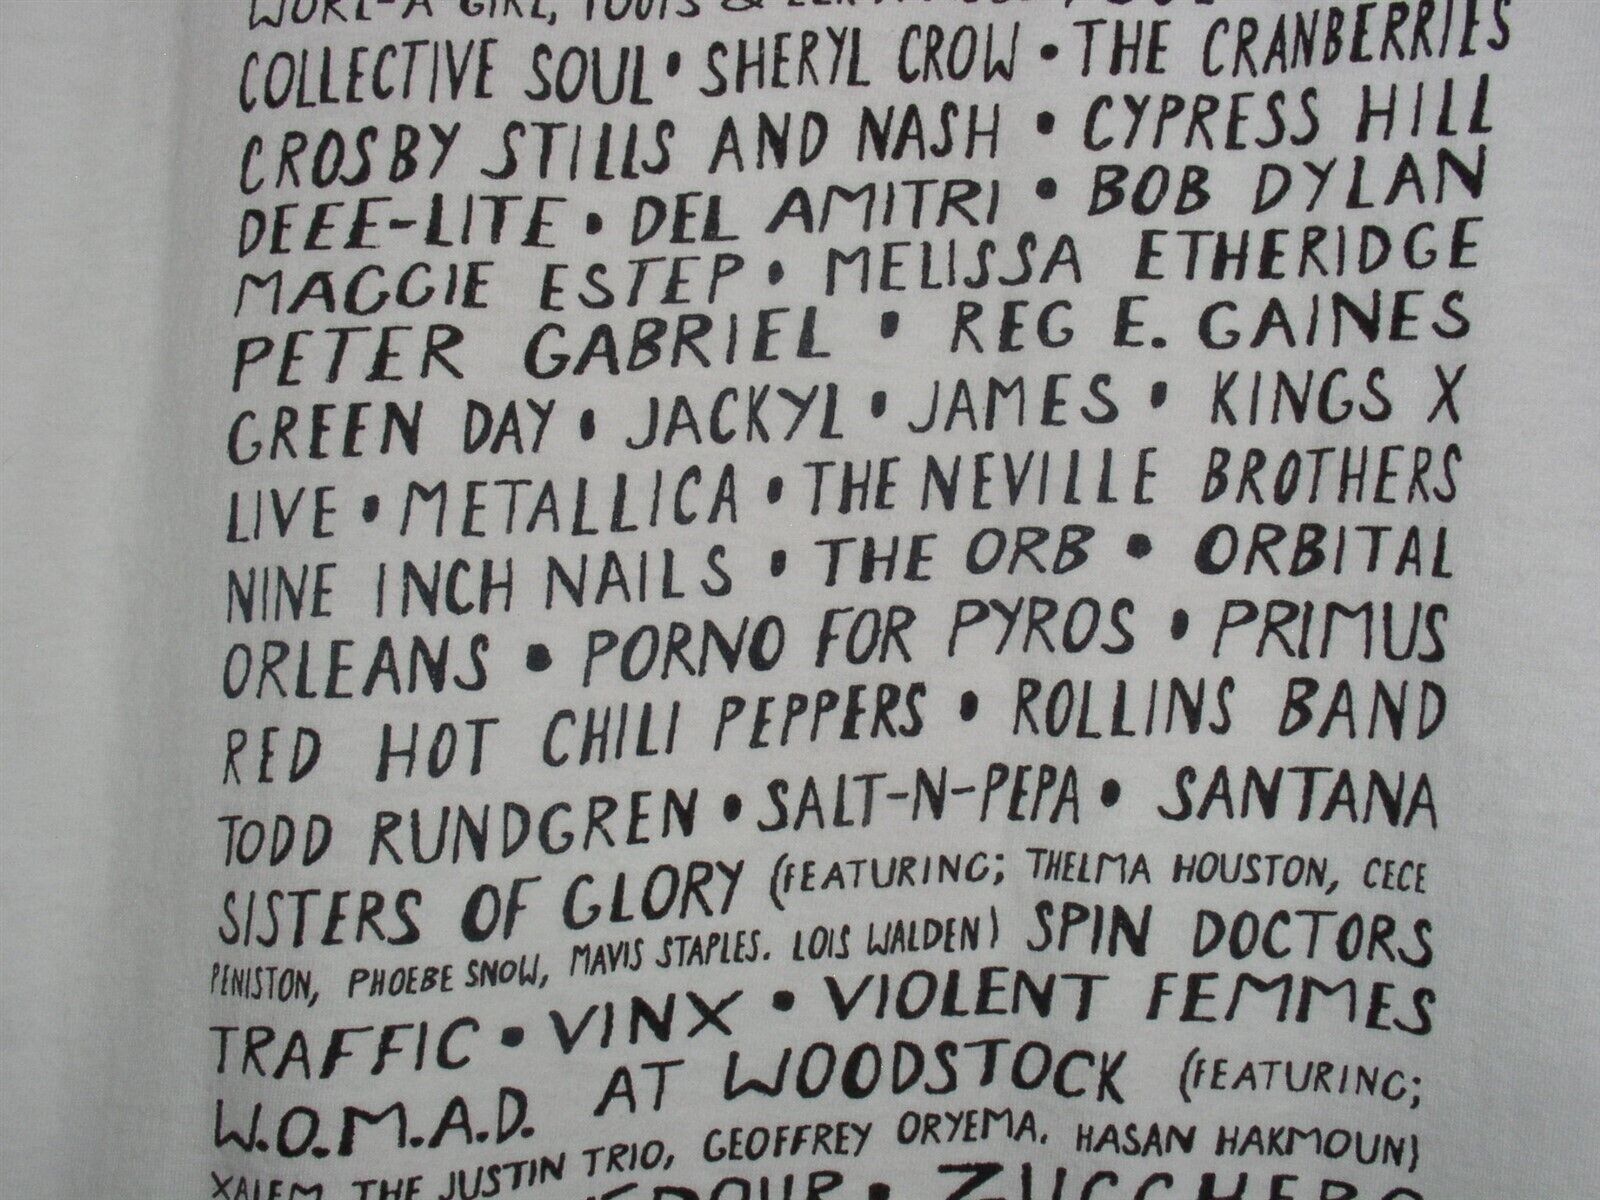 WORL-A GIRL, TOOTS &
COLLECTIVE SOUL • SHERYL CROW • THE CRANBERRIES
CROSBY STILLS AND NASH • CYPRESS HILL
DEEE-LITE • DEL AMITRI • BOB DYLAN
MAGGIE ESTEP • MELISSA ETHERIDGE
PETER GABRIEL • REG E. GAINES
GREEN DAY • JACKYL • JAMES • KINGS X
LIVE • METALLICA • THE NEVILLE BROTHERS
NINE INCH NAILS • THE ORB • ORBITAL
ORLEANS • PORNO FOR PYROS • PRIMUS
RED HOT CHILI PEPPERS • ROLLINS BAND
TODD RUNDGREN • SALT-N-PEPA • SANTANA
SISTERS OF GLORY (FEATURING; THELMA HOUSTON, CECE
PENISTON, PHOEBE SNOW, MAVIS STAPLES. LOIS WALDEN) SPIN DOCTORS
TRAFFIC • VINX • VIOLENT FEMMES
W.O.M.A.D. AT WOODSTOCK (FEATURING;
XALEM, THE JUSTIN TRIO, GEOFFREY ORYEMA. HASAN HAKMOUN)
• ZUCCHERO